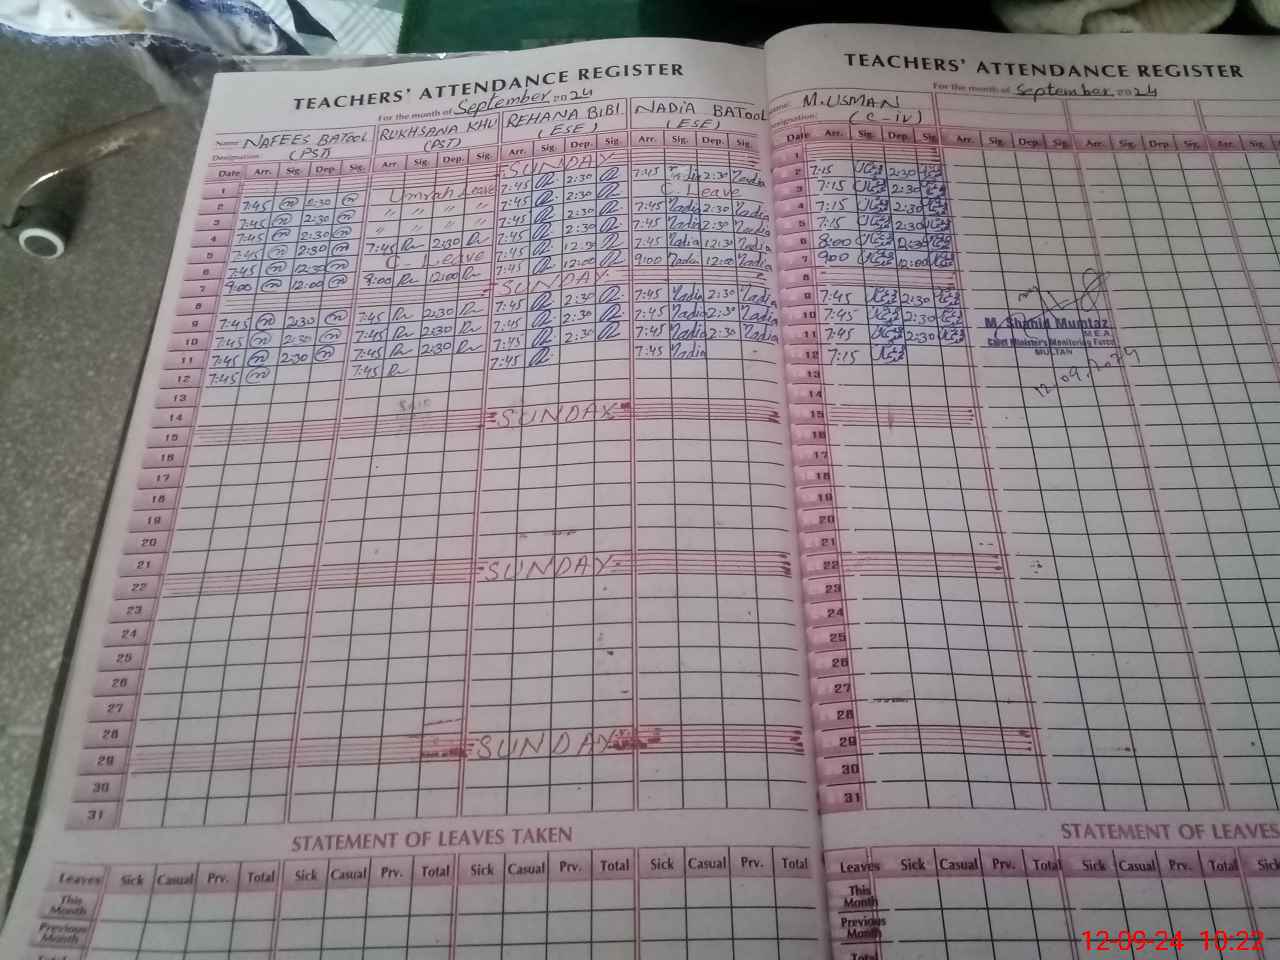 TEACHERS' ATTENDANCE REGISTER
For the month of September 2024
Name NAFEES BATOOL RUKHSANA KHU REHANA BIBI NADIA BATOOL
Designation (PST) (PST) (ESE) (ESE)
Date Arr. Sig. Dep. Sig. Arr. Sig. Dep. Sig. Arr. Sig. Dep. Sig. Arr. Sig. Dep. Sig.
1 SUNDAY
2 7:45 2:30 Umrah Leave 7:45 2:30 7:45 2:30 Nadia
3 7:45 2:30 〃 〃 〃 〃 7:45 2:30 C. Leave
4 7:45 2:30 〃 〃 〃 〃 7:45 2:30 7:45 Nadia 2:30 Nadia
5 7:45 2:30 7:45 2:30 7:45 2:30 7:45 Nadia 2:30 Nadia
6 7:45 12:30 C. Leave 7:45 7:45 Nadia 12:30 Nadia
7 8:00 12:00 8:00 12:00 7:45 12:00 9:00 Nadia 12:00 Nadia
8 SUNDAY
9 7:45 2:30 7:45 2:30 7:45 2:30 7:45 Nadia 2:30 Nadia
10 7:45 2:30 7:45 2:30 7:45 2:30 7:45 Nadia 2:30 Nadia
11 7:45 2:30 7:45 2:30 7:45 2:30 7:45 Nadia 2:30 Nadia
12 7:45 7:45 7:45 7:45 Nadia
13
14
15 SUNDAY
16
17
18
19
20
21
22 SUNDAY
23
24
25
26
27
28
29 SUNDAY
30
31
STATEMENT OF LEAVES TAKEN
Leaves Sick Casual Prv. Total Sick Casual Prv. Total Sick Casual Prv. Total Sick Casual Prv. Total
This Month
Previous Month
Total
TEACHERS' ATTENDANCE REGISTER
For the month of September 2024
Name: M. USMAN
Designation: (C-iv)
Date Arr. Sig. Dep. Sig. Arr. Sig. Dep. Sig. Arr. Sig. Dep. Sig.
1
2 7:15 2:30
3 7:15 2:30
4 7:15 2:30
5 7:15 2:30
6 8:00 12:30
7 9:00 12:00
8
9 7:45 2:30
10 7:45 2:30
11 7:45 2:30
12 7:15
M. Shahid Mumtaz
M.E.A
Chief Minister's Monitoring Force
MULTAN
12.09.2024
13
14
15
16
17
18
19
20
21
22
23
24
25
26
27
28
29
30
31
STATEMENT OF LEAVES
Leaves Sick Casual Prv. Total Sick Casual Prv. Total Sick
This Month
Previous Month
Total
12-09-24 10:22